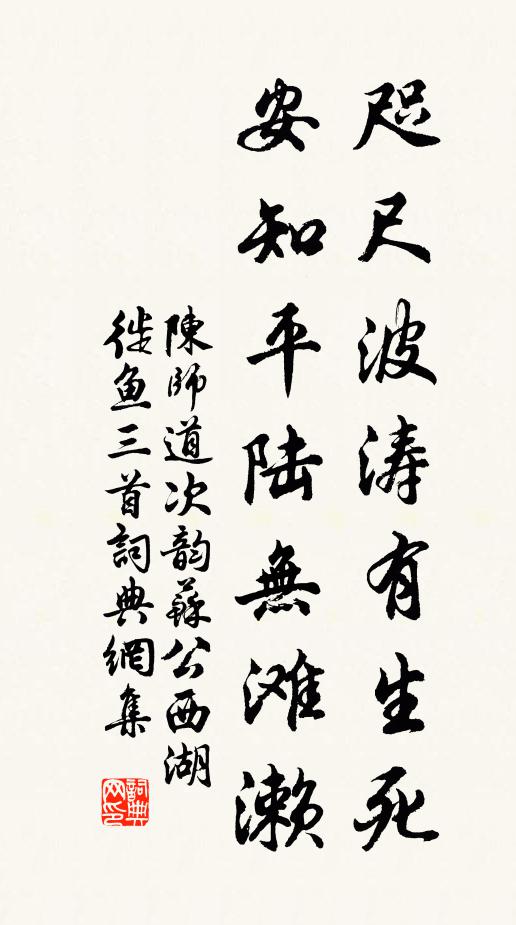 咫尺波涛有生死
安知平陆無滩濑
陳師道次韵蘇公西湖
徙鱼三首詞典網集
詞典网印